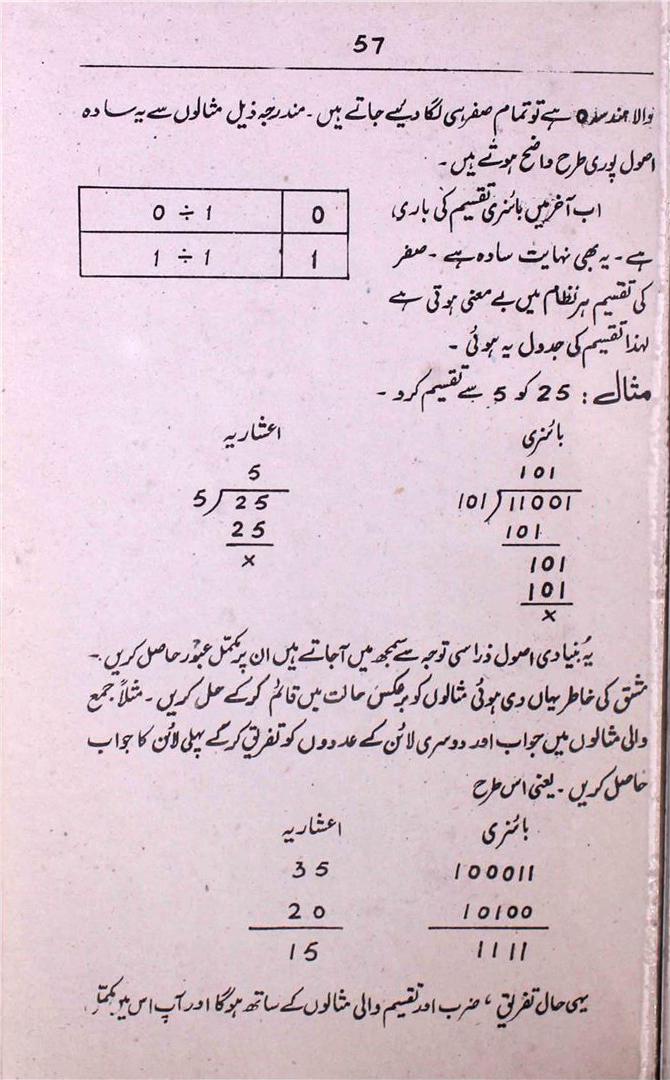 57
والا ہندسہ 0 ہے تو تمام صفر ہی لگا دیے جاتے ہیں ۔ مندرجہ ذیل مثالوں سے یہ سادہ
اصول پوری طرح واضح ہوتے ہیں ۔
اب آخر میں بائنری تقسیم کی باری
ہے ۔ یہ بھی نہایت سادہ ہے ۔ صفر
کی تقسیم ہر نظام میں بے معنی ہوتی ہے
لہذا تقسیم کی جدول یہ ہوئی ۔
0 ÷ 1 0
1 ÷ 1 1
مثال : 25 کو 5 سے تقسیم کرو ۔
بائنری اعشاریہ
101 5
101)11001 5)25
101 25
101 x
101
x
یہ بنیادی اصول ذرا سی توجہ سے سمجھ میں آجاتے ہیں ان پر مکمل عبور حاصل کریں ۔
مشق کی خاطر یہاں دی ہوئی مثالوں کو برعکس حالت میں قائم کر کے حل کریں ۔ مثلاً جمع
والی مثالوں میں جواب اور دوسری لائن کے عددوں کو تفریق کر کے پہلی لائن کا جواب
حاصل کریں ۔ یعنی اس طرح
بائنری اعشاریہ
100011 35
10100 20
1111 15
یہی حال تفریق ، ضرب اور تقسیم والی مثالوں کے ساتھ ہوگا اور آپ اس میں مکمل